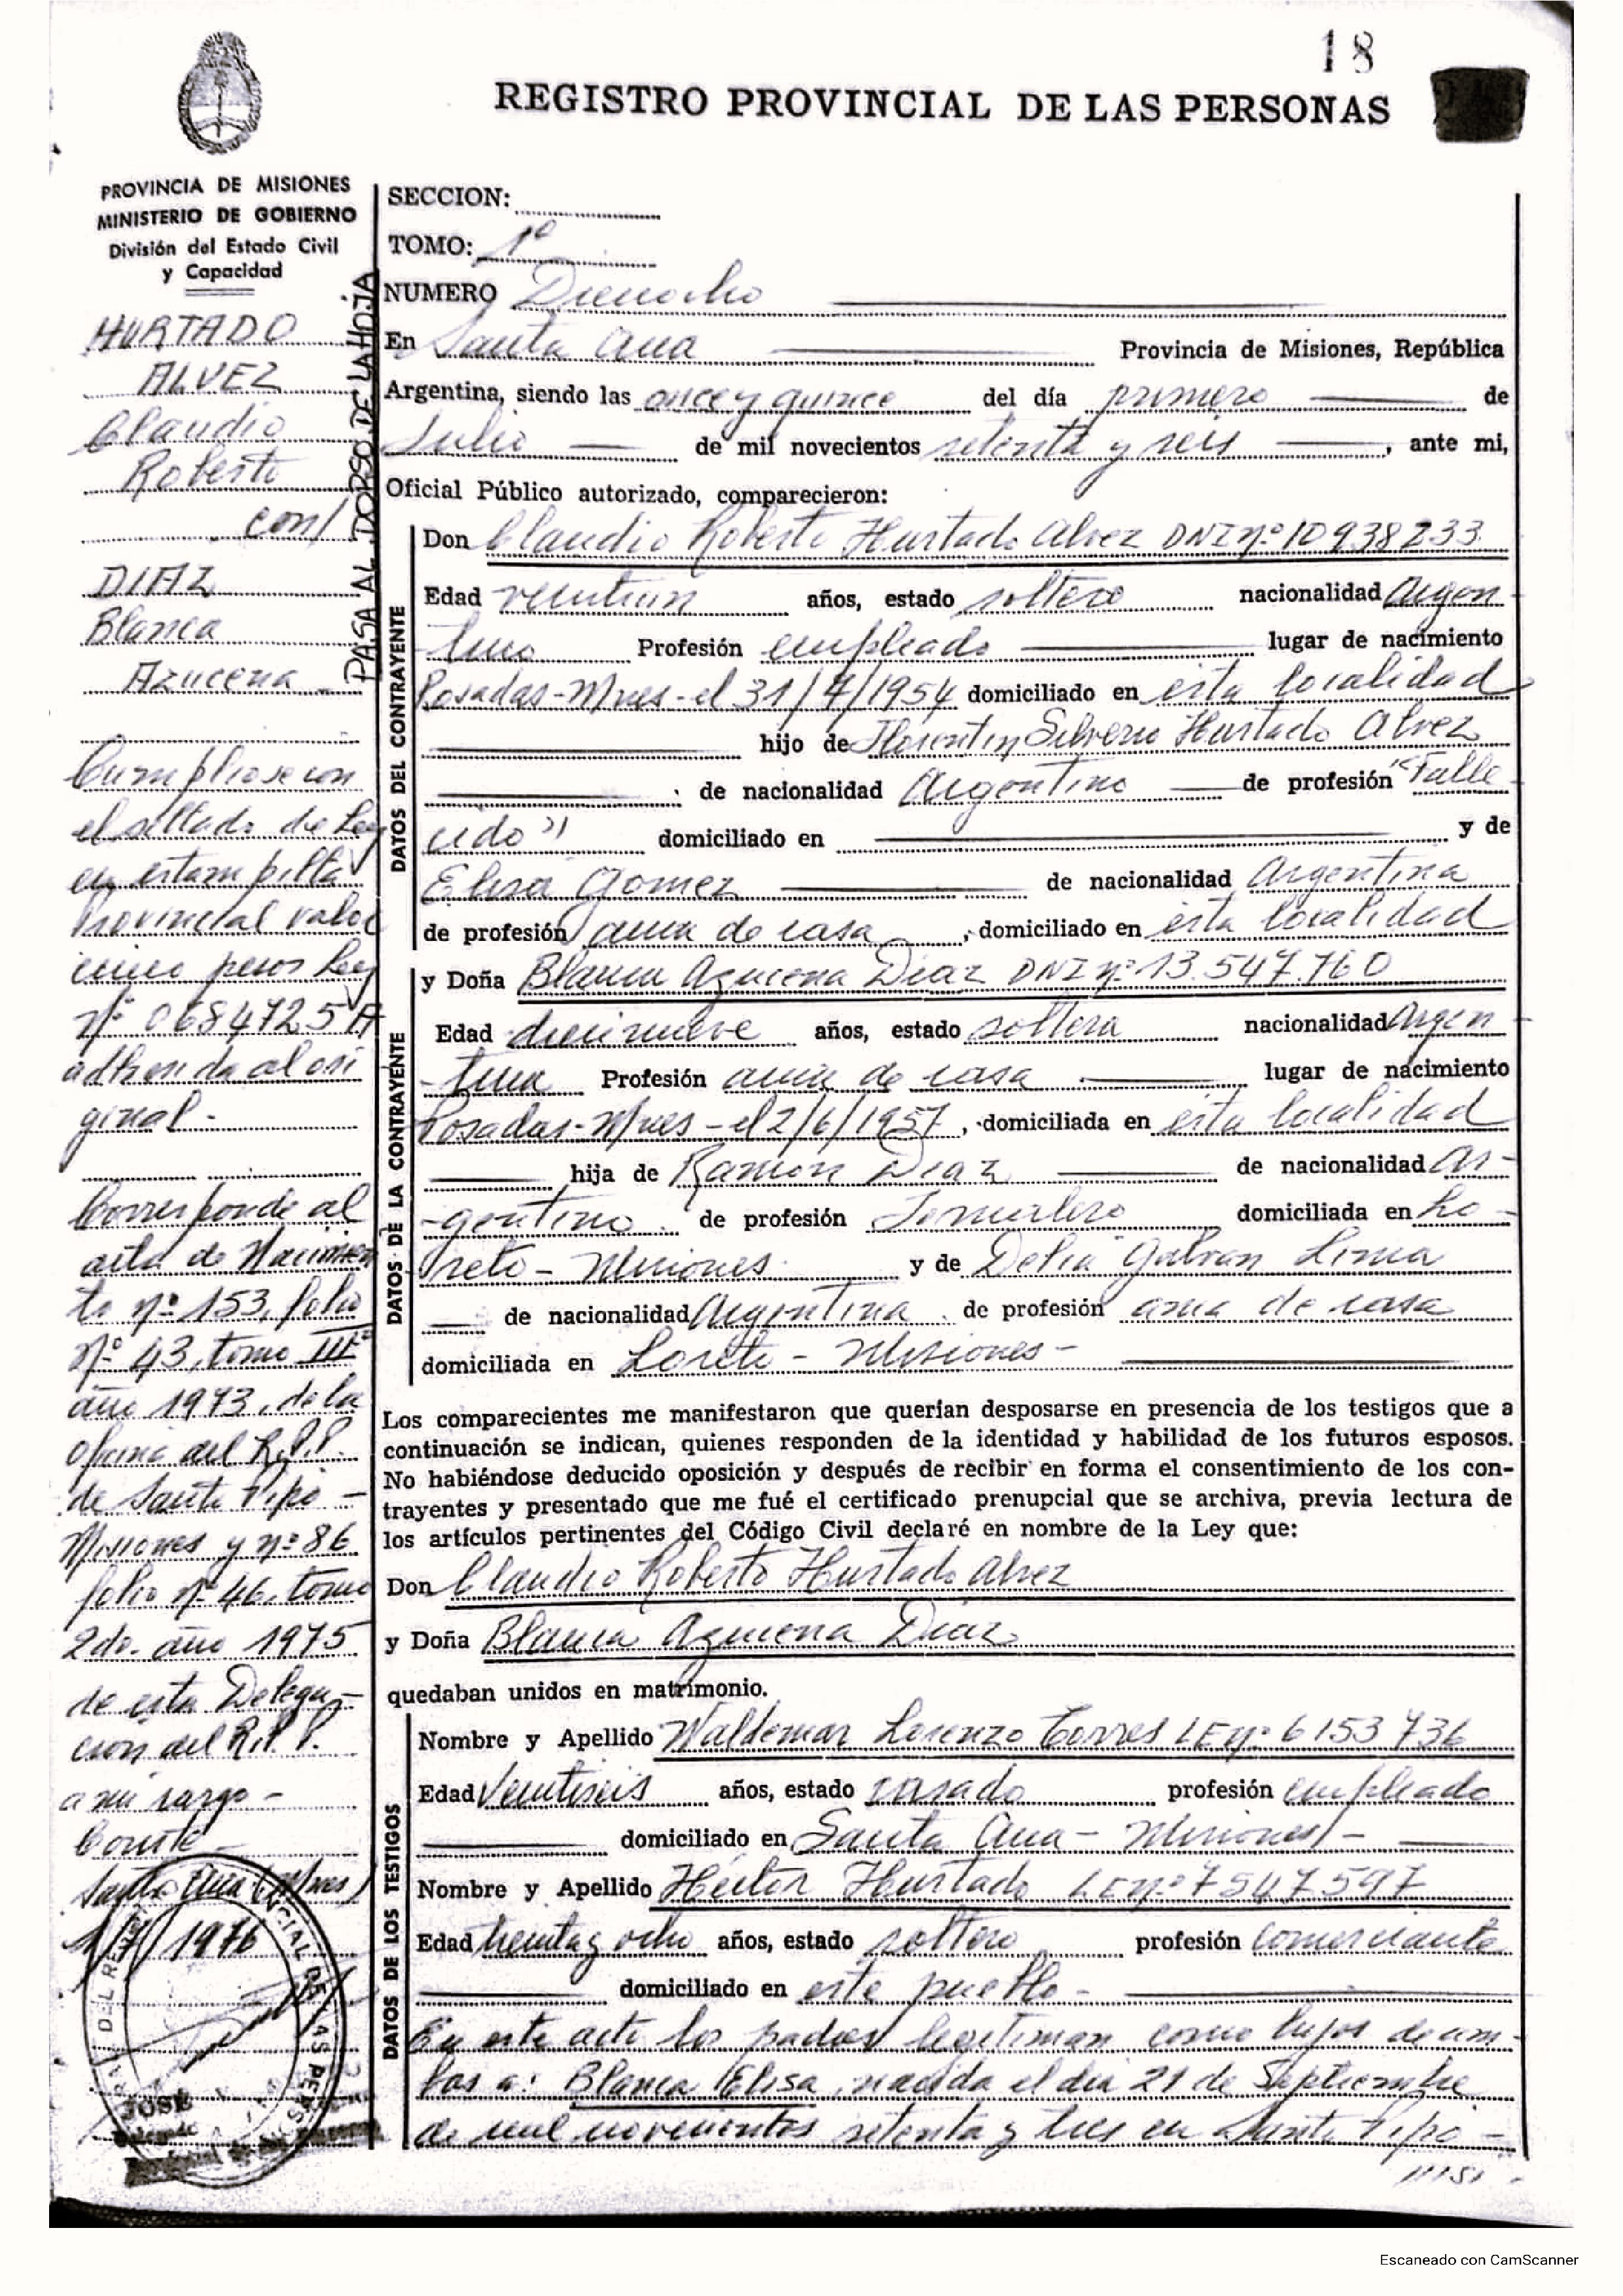 18
REGISTRO PROVINCIAL DE LAS PERSONAS
PROVINCIA DE MISIONES
MINISTERIO DE GOBIERNO
División del Estado Civil
y Capacidad
HURTADO
ALVEZ
Claudio
Roberto
con/
DIAZ
Blanca
Azucena
PASA AL DORSO DE LA HOJA
Cumpliose con
el sellado de Ley
en estampilla
Provincial valor
cinco pesos Ley
nº 0684725 A
adherida al ori
ginal.-
Corresponde al
acta de Nacimien
to nº 153, folio
Nº 43, tomo III
año 1973, de la
oficina del R.P.P.
de Santo Pipo -
Misiones y nº 86
folio nº 46, tomo
2do. año 1975
de esta Delega-
ción del R.P.P.
a mi cargo -
Conste -
Santa Ana (Mnes)
1/7/1976
JOSE
SECCION:
TOMO: 1º
NUMERO Dieciocho
En Santa Ana Provincia de Misiones, República
Argentina, siendo las once y quince del día primero de
Julio de mil novecientos setenta y seis, ante mi,
Oficial Público autorizado, comparecieron:
DATOS DEL CONTRAYENTE
Don Claudio Roberto Hurtado Alvez DNI nº 10938233
Edad veintiun años, estado soltero nacionalidad Argen-
tino Profesión empleado lugar de nacimiento
Posadas-Mnes-el 31/7/1954 domiciliado en esta localidad
hijo de Florentin Silverio Hurtado Alvez
de nacionalidad Argentino de profesión "Falle-
cido" domiciliado en y de
Elisa Gomez de nacionalidad Argentina
de profesión ama de casa, domiciliado en esta localidad
DATOS DE LA CONTRAYENTE
y Doña Blanca Azucena Diaz DNI nº 13.547.760
Edad diecinueve años, estado soltera nacionalidad Argen-
tina Profesión ama de casa lugar de nacimiento
Posadas-Mnes-el 2/6/1957, domiciliada en esta localidad
hija de Ramon Diaz de nacionalidad Ar-
gentino de profesión Jornalero domiciliada en Lo-
reto - Misiones y de Delia Galvan Lima
de nacionalidad Argentina de profesión ama de casa
domiciliada en Loreto - Misiones -
Los comparecientes me manifestaron que querían desposarse en presencia de los testigos que a
continuación se indican, quienes responden de la identidad y habilidad de los futuros esposos.
No habiéndose deducido oposición y después de recibir en forma el consentimiento de los con-
trayentes y presentado que me fué el certificado prenupcial que se archiva, previa lectura de
los artículos pertinentes del Código Civil declaré en nombre de la Ley que:
Don Claudio Roberto Hurtado Alvez
y Doña Blanca Azucena Diaz
quedaban unidos en matrimonio.
DATOS DE LOS TESTIGOS
Nombre y Apellido Waldemar Lorenzo Torres LE nº 6153736
Edad Veintiseis años, estado casado profesión empleado
domiciliado en Santa Ana - Misiones -
Nombre y Apellido Héctor Hurtado LE nº 7547597
Edad treinta y ocho años, estado soltero profesión Comerciante
domiciliado en este pueblo -
En este acto los padres legitiman como hijos de am-
bos a: Blanca Elisa, nacida el dia 21 de Septiembre
de mil novecientos setenta y tres en Santo Pipo -
Escaneado con CamScanner